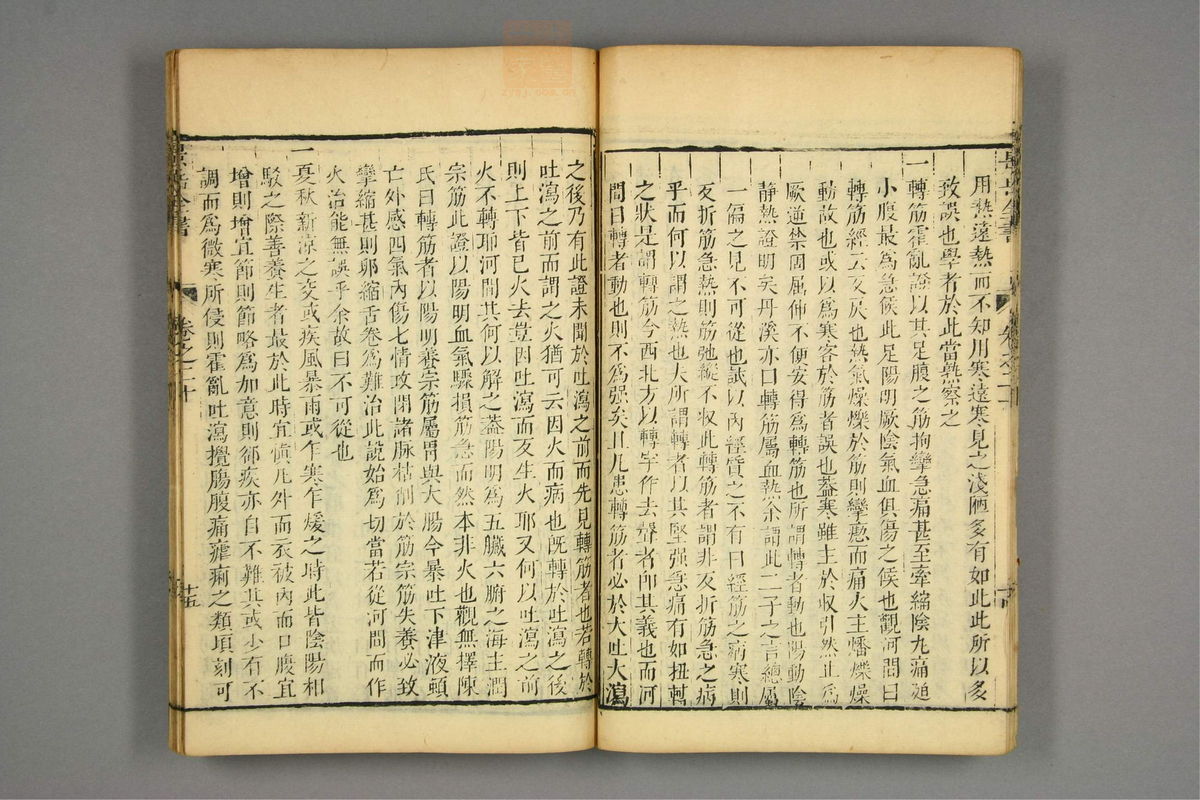 用熱遠熱而不知用寒遠寒見之淺陋多有如此此所以多
致誤也學者於此當熟察之
一轉筋霍亂證以其足腹之筋拘攣急痛甚至牽縮陰丸痛廹
小腹最為急候此足陽明厥陰氣血俱傷之候也觀河間曰
轉筋經云反戾也熱氣燥爍於筋則攣瘛而痛火主燔爍燥
動故也或以為寒客於筋者誤也蓋寒雖主於収引然止為
厥逆禁固屈伸不便安得為轉筋也所謂轉者動也陽動陰
静熱證明矣丹溪亦曰轉筋屬血熱余謂此二子之言總屬
一偏之見不可從也試以內經質之不有曰經筋之病寒則
反折筋急熱則筋弛縱不収此轉筋者謂非反折筋急之病
乎而何以謂之熱也夫所謂轉者以其堅强急痛有如扭轉
之狀是謂轉筋今西北方以轉字作去聲者卽其義也而河
間曰轉者動也則不為强矣且凡患轉筋者必於大吐大瀉
之後乃有此證未聞於吐瀉之前而先見轉筋者也若轉於
吐瀉之前而謂之火猶可云因火而病也旣轉於吐瀉之後
則上下皆已火去豈因吐瀉而反生火耶又何以吐瀉之前
火不轉耶河間其何以解之蓋陽明為五臟六腑之海主潤
宗筋此證以陽明血氣驟損筋急而然本非火也觀無擇陳
氏曰轉筋者以陽明養宗筋屬胃與大腸今暴吐下津液頓
亡外感四氣內傷七情攻閉諸脉枯削於筋宗筋失養必致
攣縮甚則卵縮舌卷為難治此說始為切當若從河間而作
火治能無誤乎余故曰不可從也
一夏秋新凉之交或疾風暴雨或乍寒乍煖之時此皆陰陽相
駁之際善養生者最於此時宜愼凡外而衣被內而口腹宜
增則增宜節則節略為加意則却疾亦自不難其或少有不
調而為微寒所侵則霍亂吐瀉攪腸腹痛瘧痢之類頃刻可
景岳全書
卷之二十
十五
景岳全書
卷之二十